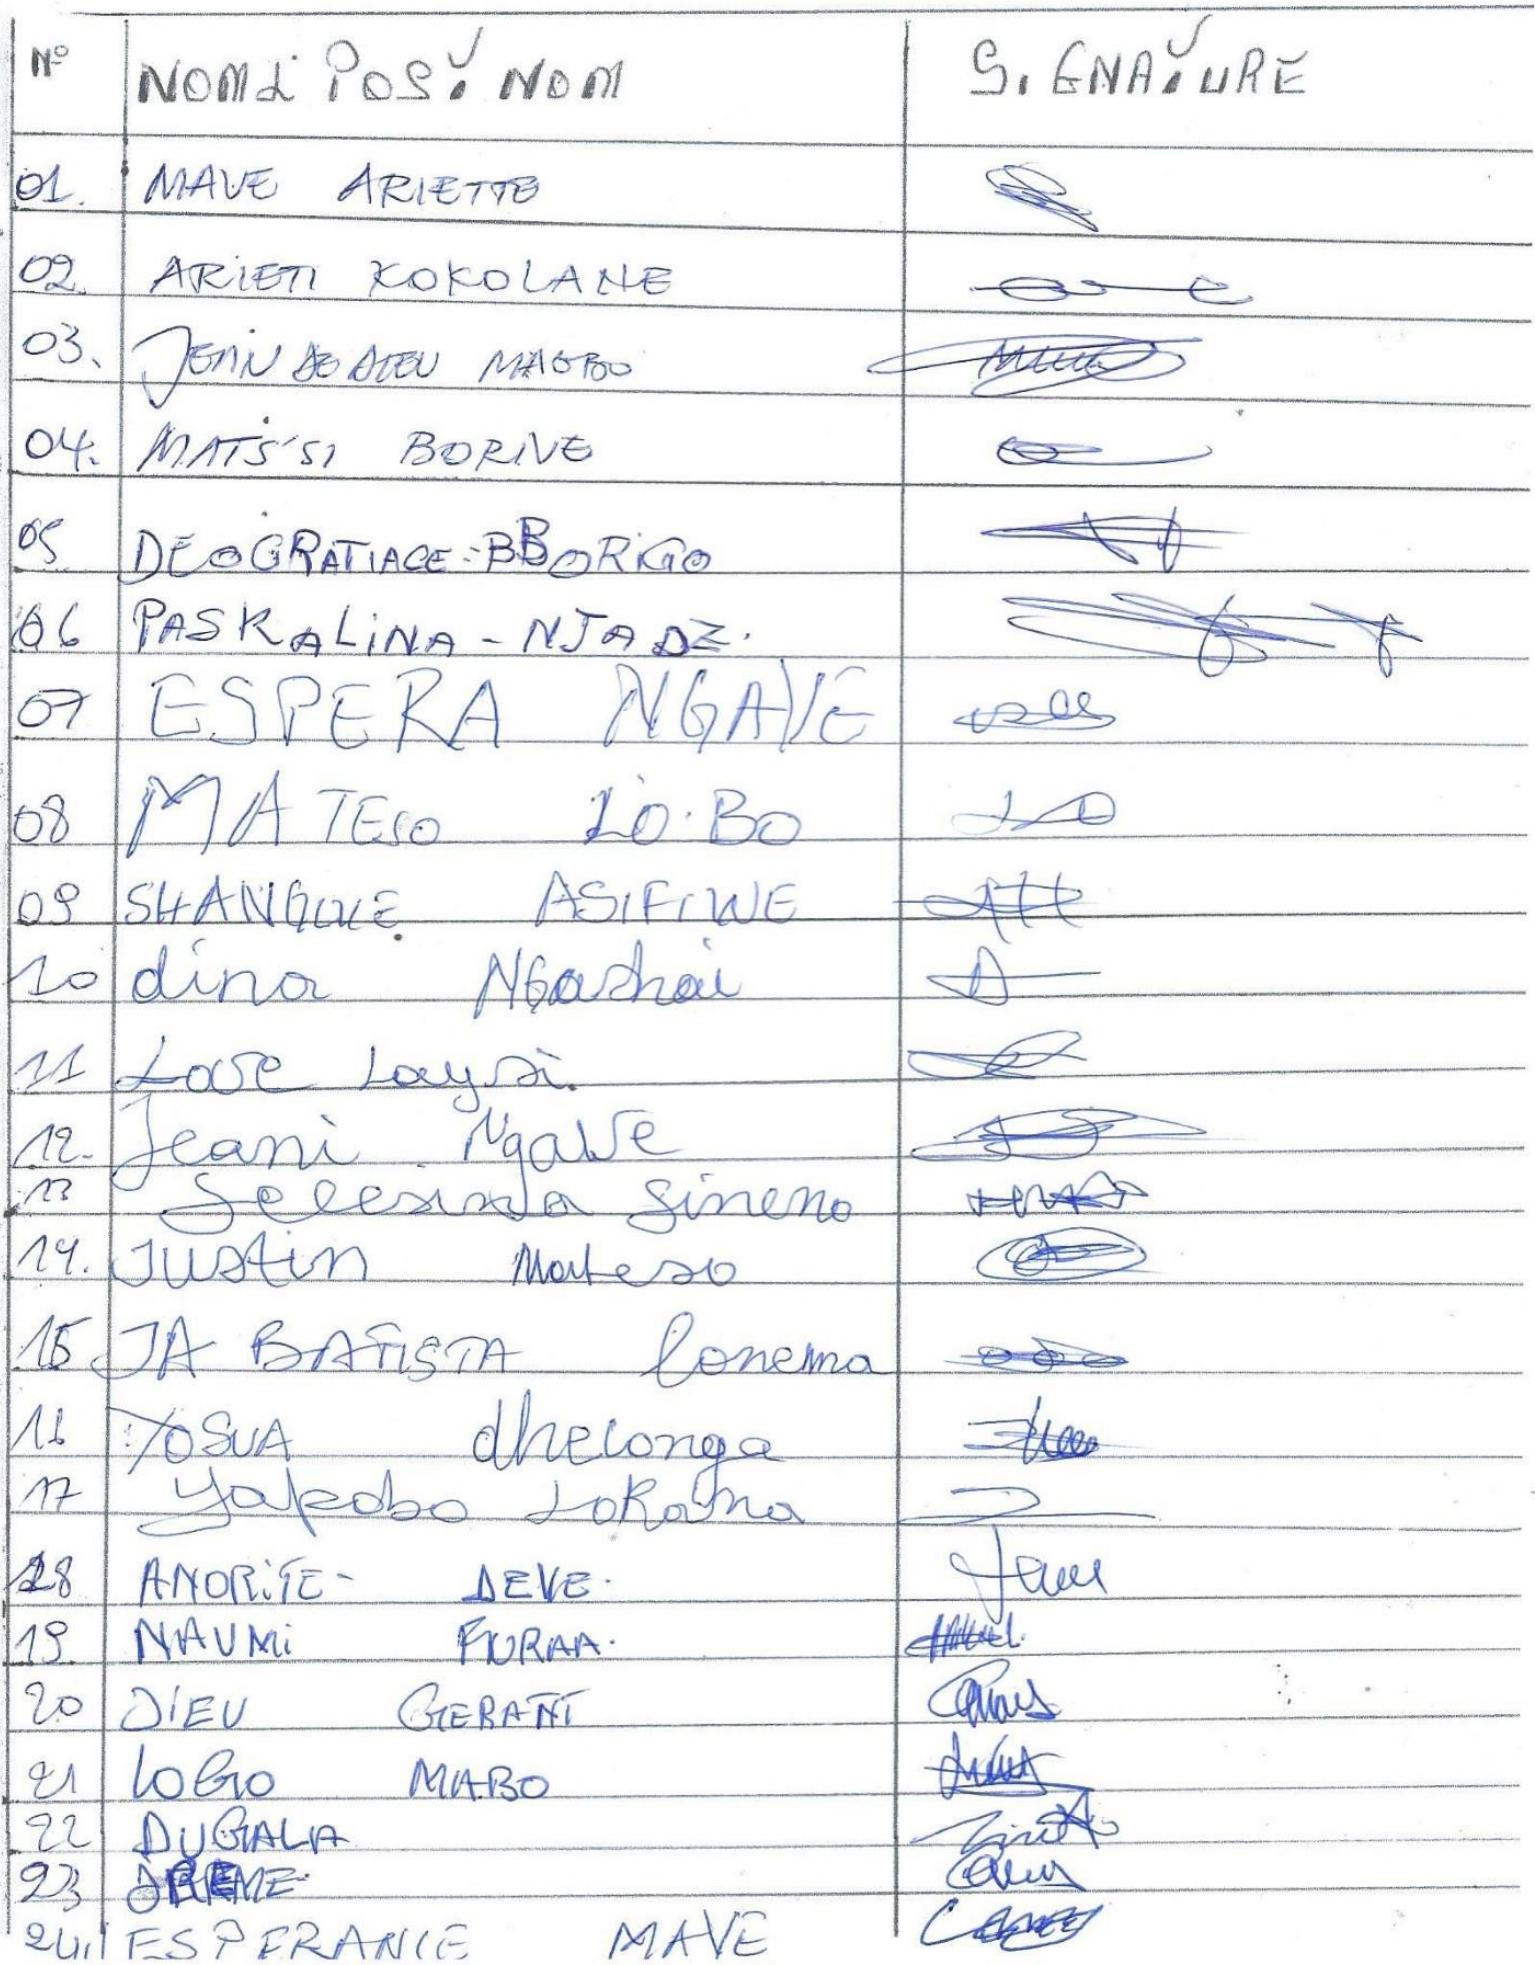 N° NOM & POST NOM SIGNATURE
01. MAVE ARIETTE
02. ARIETI KOKOLANE
03. JEAN DE DIEU MAGBO
04. MATS'SI BORIVE
05 DEOGRATIACE-BBORIGO
06 PASKALINA-NJADZ.
07 ESPERA NGAVE
08 MATESO LO.BO
09 SHANGUVE ASIFIWE
10 dina NGashai
11 Love Laysi.
12. Jeani Ngave
13 Selesina Sineno
14. JUStin Mateso
15 JA BATISTA Lonema
16 YOSUA dhelonga
17 Yakobo Lokana
18 ANORITE- DEVE.
19. NAUMi FURAA.
20 DIEU GERANT
21 LOGO MABO
22 DUGALA
23
24. ESPERANCE MAVE